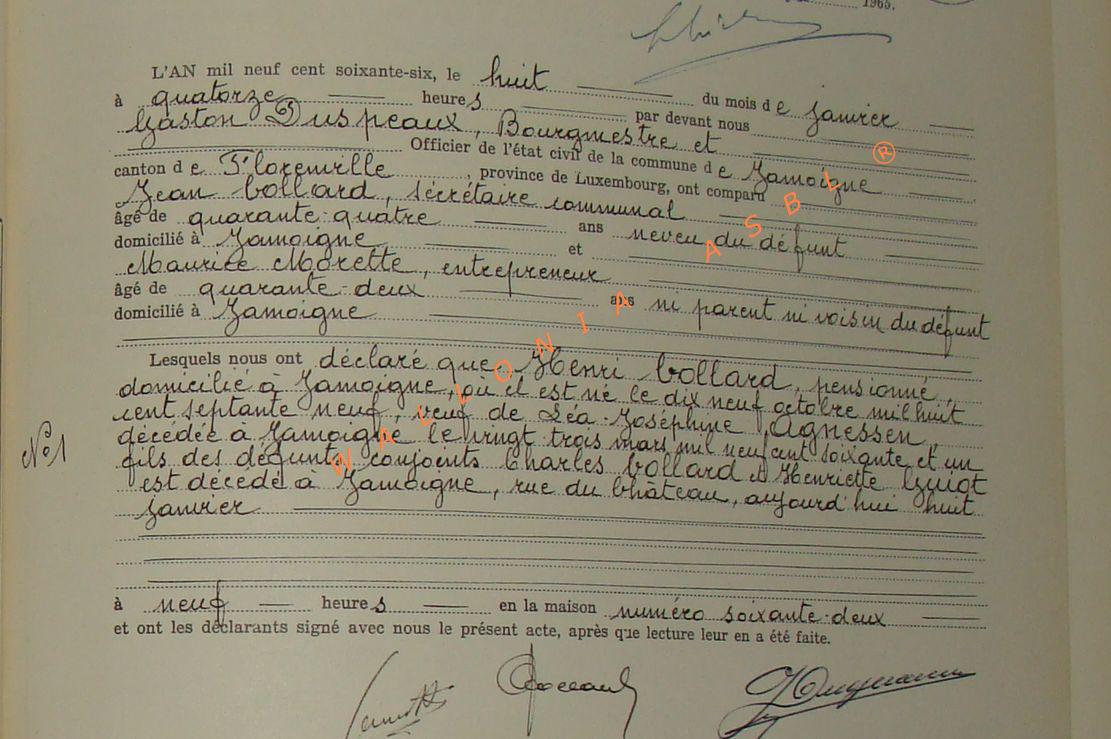 1965.
L'AN mil neuf cent soixante-six, le huit du mois de janvier
à quatorze heures par devant nous
Gaston Duspeaux, Bourgmestre et
Officier de l'état civil de la commune de Jamoigne
canton de Florenville, province de Luxembourg, ont comparu
Jean Collard, secrétaire communal
âgé de quarante-quatre ans neveu du défunt
domicilié à Jamoigne et
Maurice Morette, entrepreneur
âgé de quarante-deux ans ni parent ni voisin du défunt
domicilié à Jamoigne
Lesquels nous ont déclaré que Henri Collard, pensionné,
domicilié à Jamoigne, où il est né le dix neuf octobre mil huit
cent septante neuf, veuf de Léa-Joséphine Agnessen,
décédée à Jamoigne le vingt trois mars mil neuf cent soixante et un
fils des défunts conjoints Charles Collard et Henriette Guiot
est décédé à Jamoigne, rue du Château, aujourd'hui huit
janvier
N° 1
à neuf heures en la maison numéro soixante-deux
et ont les déclarants signé avec nous le présent acte, après que lecture leur en a été faite.
WALLONIA ASBL ®